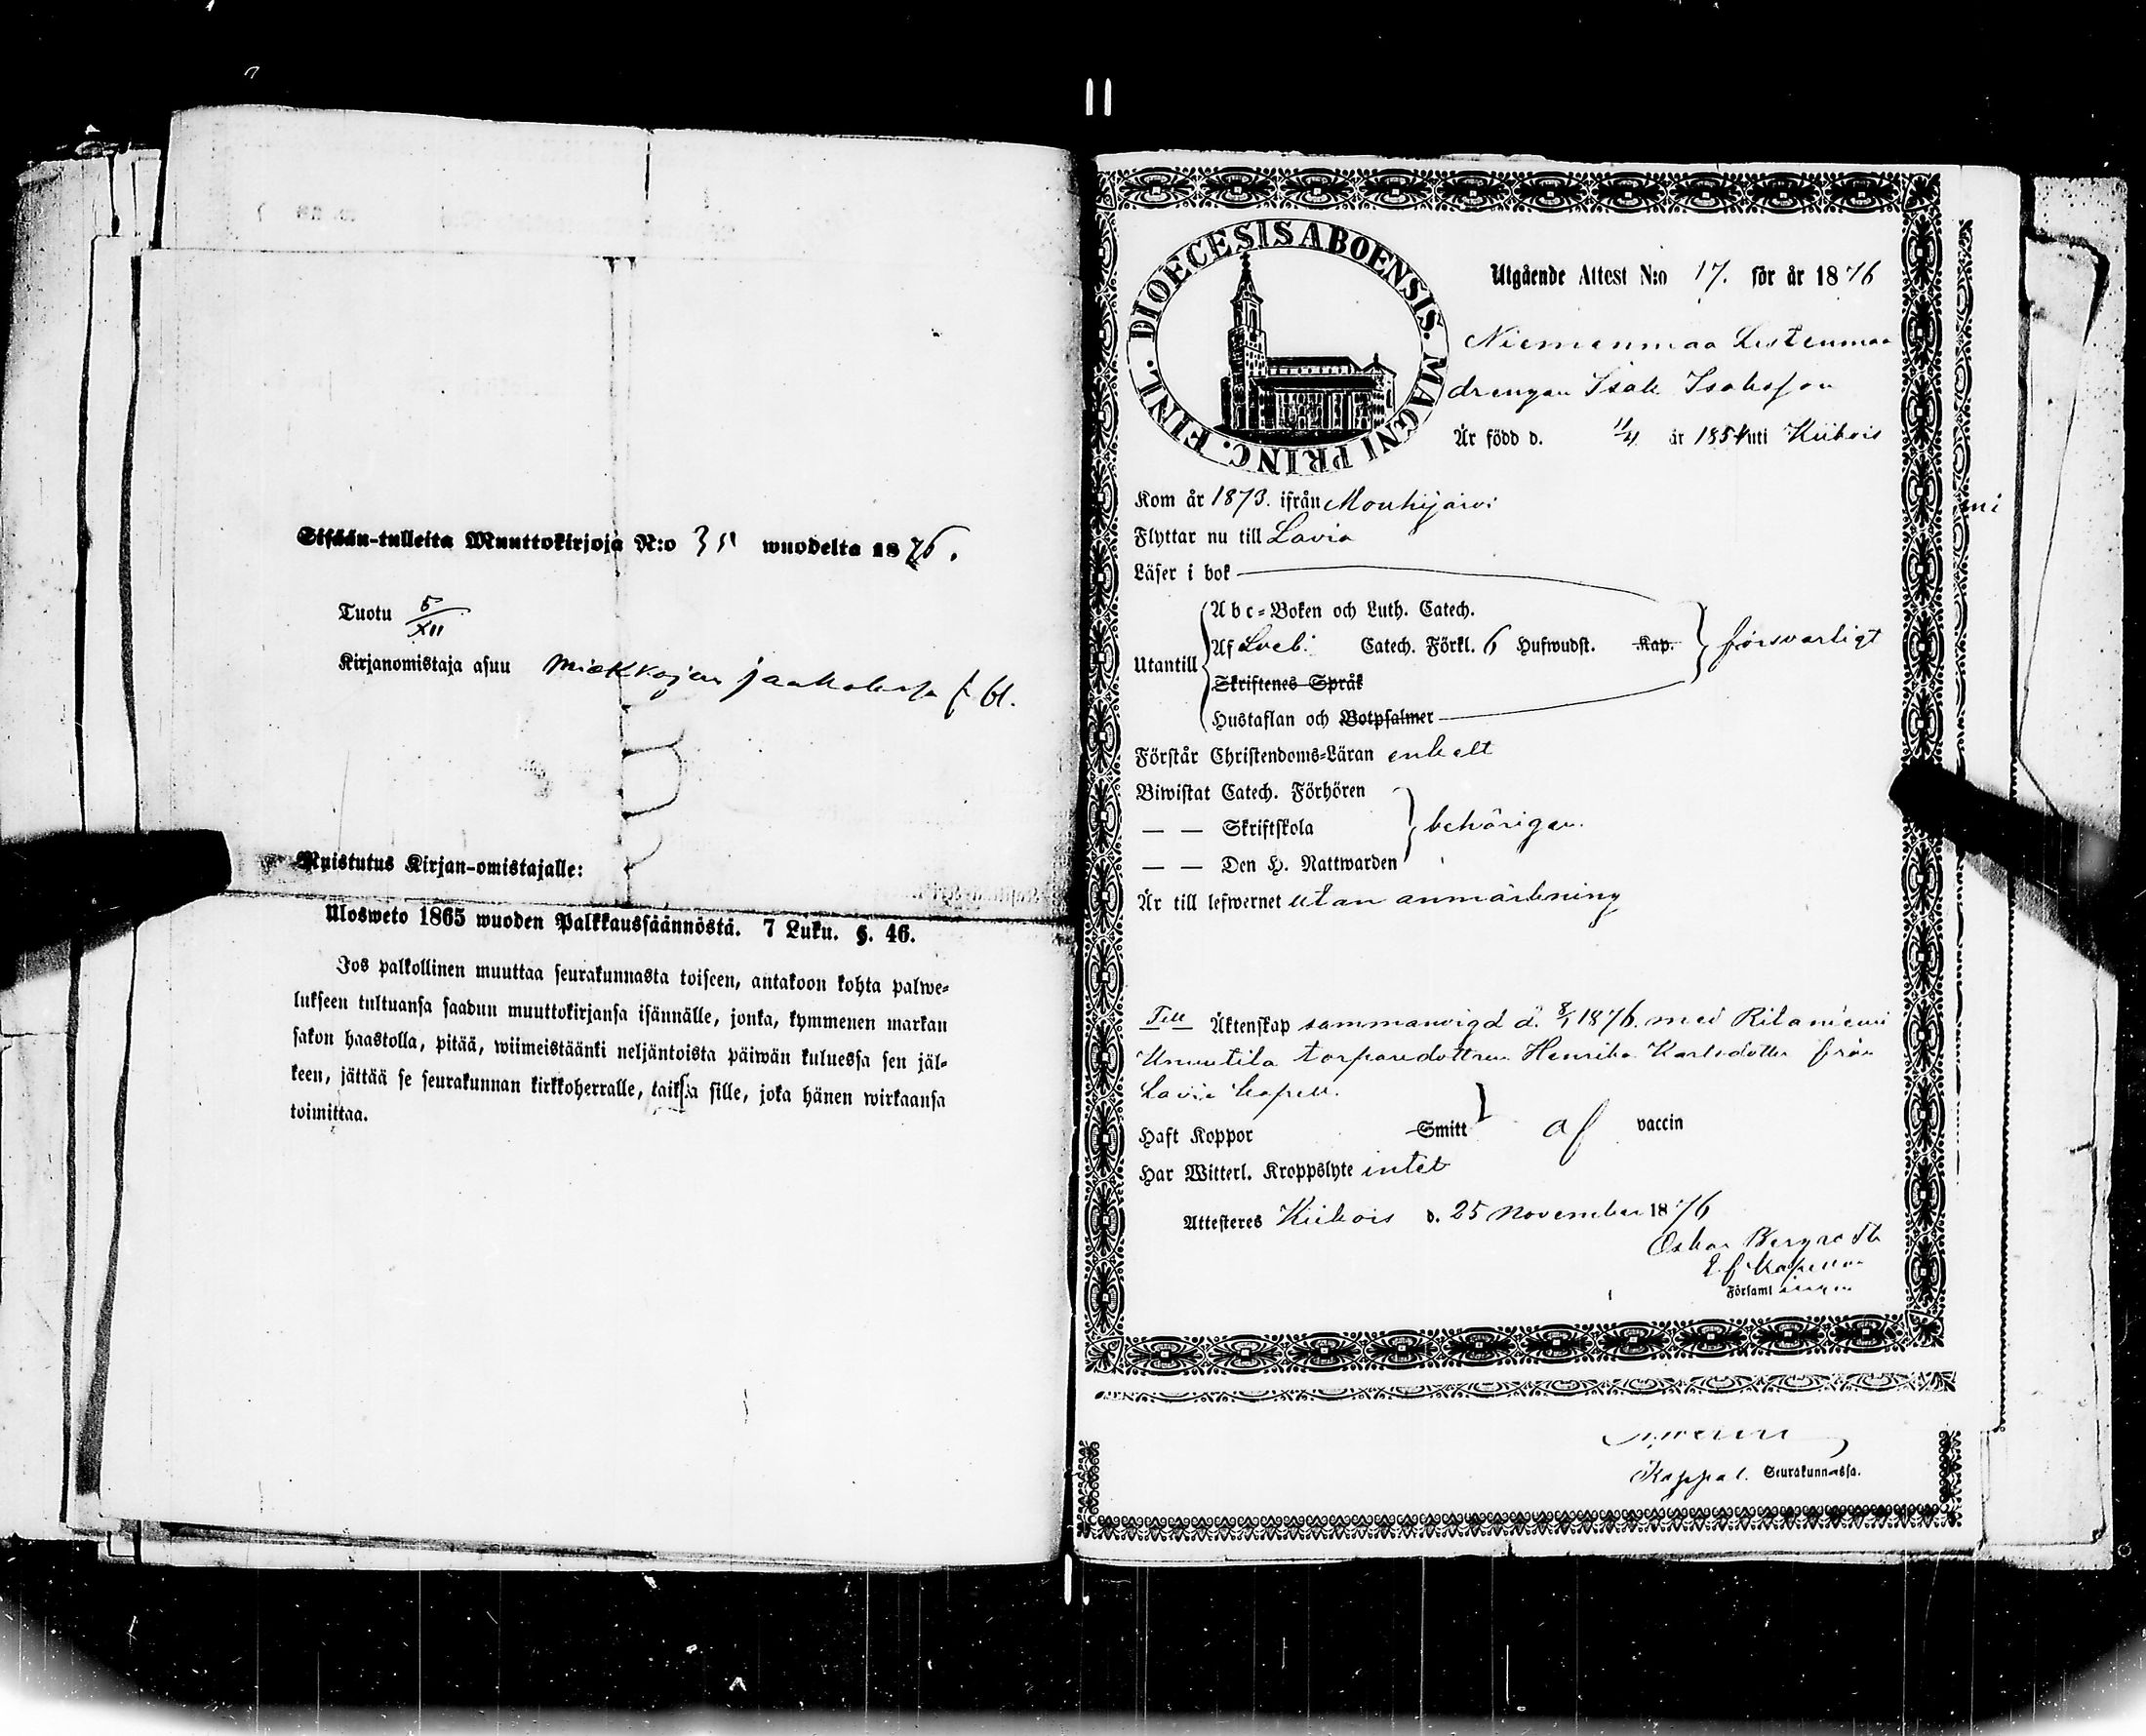 Sisään-tulleita Muuttokirjoja N:o 35 wuodelta 1876.
Tuotu 5/XII
Kirjanomistaja asuu
Muistutus Kirjan-omistajalle:
Ulosweto 1865 wuoden Palkkaussäännöstä. 7 Luku. §. 46.
Jos palkollinen muuttaa seurakunnasta toiseen, antakoon kohta palwe-
lukseen tultuansa saadun muuttokirjansa isännälle, jonka, kymmenen markan
sakon haastolla, pitää, wiimeistäänki neljäntoista päiwän kuluessa sen jäl-
keen, jättää se seurakunnan kirkkoherralle, taikka sille, joka hänen wirkaansa
toimittaa.
DIOECESIS ABOENSIS. MAGNI PRINC. FINL.
Utgående Attest N:o 17. för år 1876
Niemenmaa
drengen Isak Isaksson
Är född d. 11/4 år 1854 uti Kiikois
Kom år 1873. ifrån Mouhijärvi
Flyttar nu till Lavia
Läser i bok
Abc-Boken och Luth. Catech.
Utantill
Af Sveb. Catech. Förkl. 6 Hufwudst. Kap.
försvarligt
Skriftenes Språk
Hustaflan och Botpsalmer
Förstår Christendoms-Läran enkelt
Biwistat Catech. Förhören
— — Skriftskola
behörigen.
— — Den H. Nattwarden
Är till lefwernet utan anmärkning
Till Äktenskap sammanvigd d. 8/1 1876. med Ritaniemi
torparedottren Henrika Karlsdotter från
Lavia kapell.
Haft Koppor Smitt af vaccin
Har Witterl. Kroppslyte intet
Attesteres Kiikois d. 25 November 1876
Oskar
Församlingen
Kappal. Seurakunnassa.